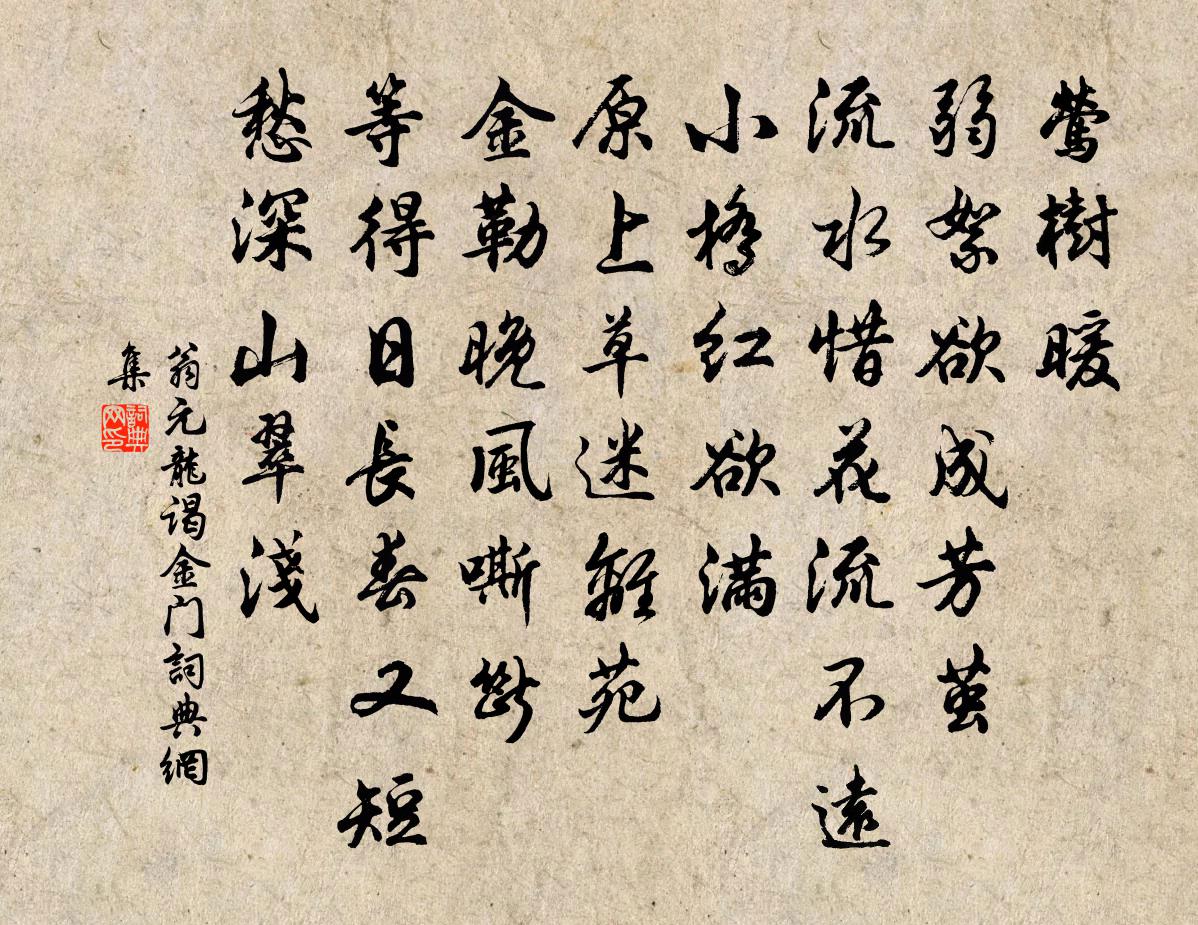 鶯樹暖
弱絮欲成芳茧
流水惜花流不遠
小橋红欲滿
原上草迷離苑
金勒晚風嘶斷
等得日長春又短
愁深山翠淺
翁元龍谒金门詞典網
集
詞典
网印